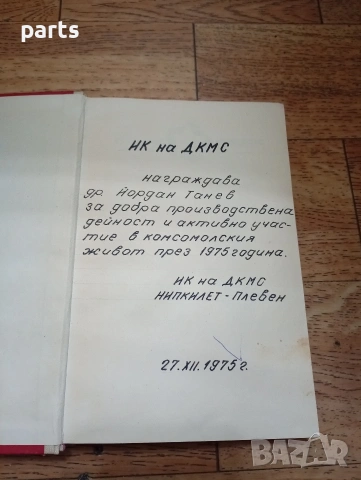 parts
ИК на ДКМС
награждава
др. Йордан Танев
за добра производствена
дейност и активно учас-
тие в комсомолския
живот през 1975 година.
ИК на ДКМС
НИПКИЛЕТ - Плевен
27.XII.1975 г.
BAZAR